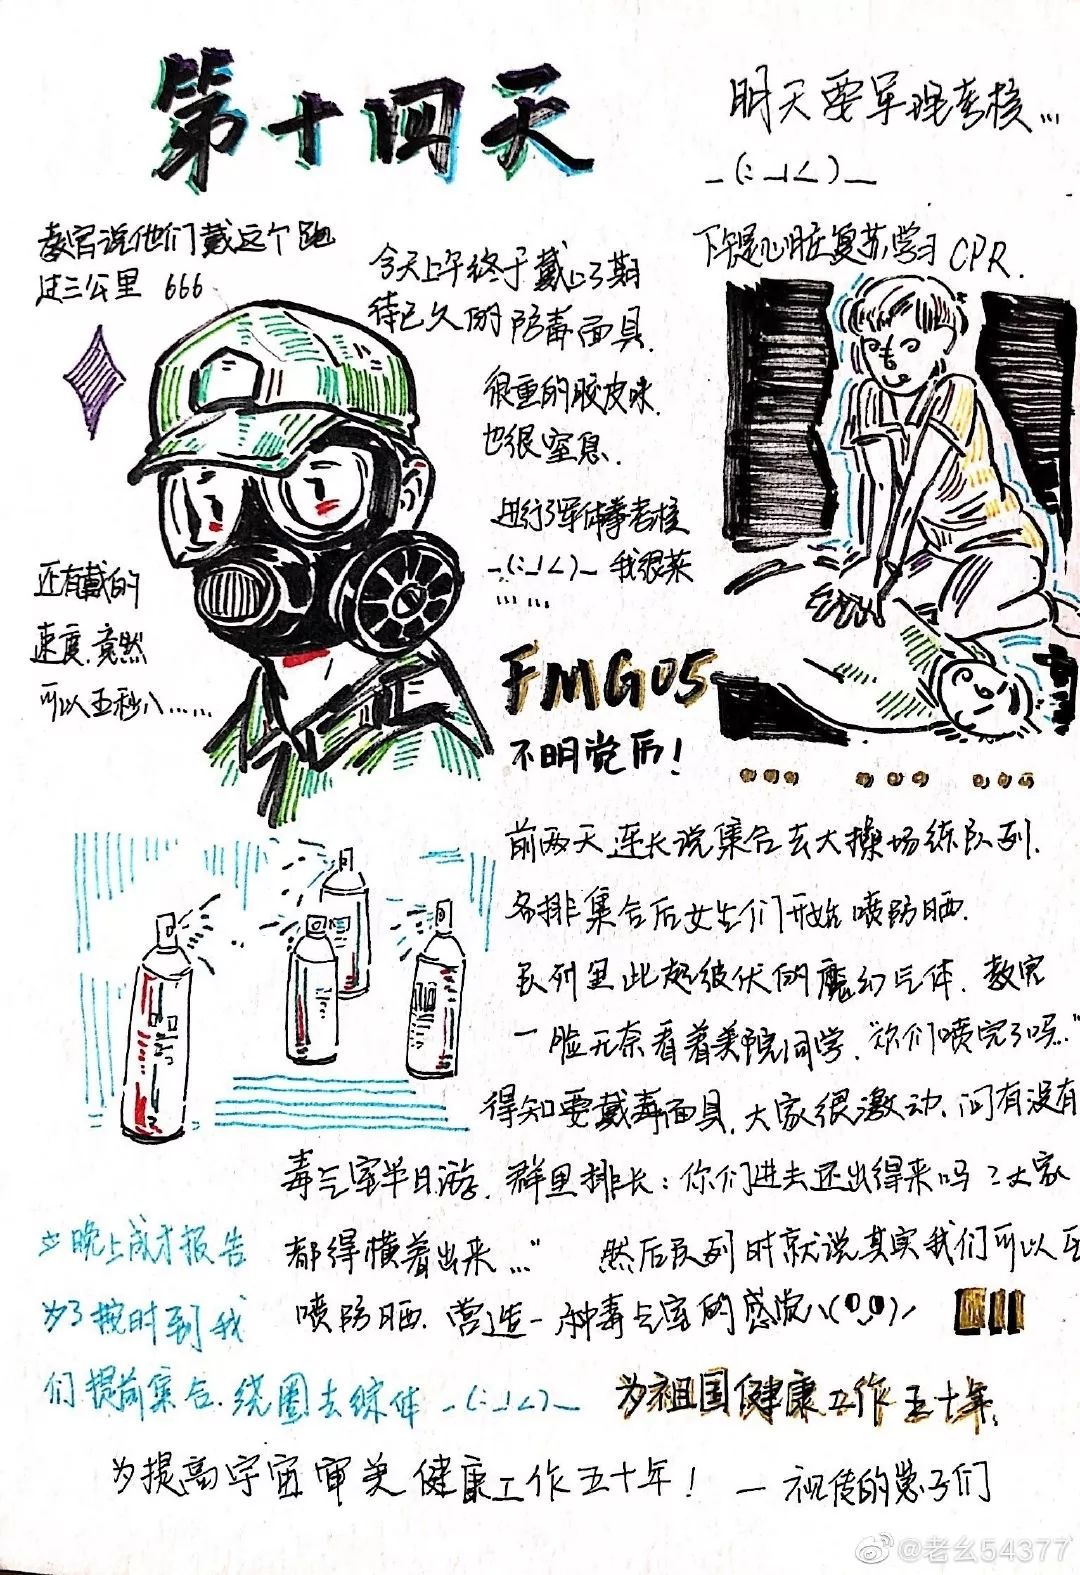 第十四天
明天要军理考核…
_(:_」∠)_
教官说他们戴这个跑
过三公里 666
今天上午终于戴上了期
待已久的防毒面具.
很重的胶皮味.
也很窒息.
进行了军体拳考核
_(:_」∠)_ 我很菜
……
下午是心脏复苏学习 CPR.
还有戴的
速度.竟然
可以五秒八……
FMG05
不明觉厉!
前两天连长说集合去大操场练队列.
各排集合后女生们开始喷防晒.
队列里此起彼伏的魔幻气体.教官
一脸无奈看着美院同学.“你们喷完了吗..”
得知要戴毒面具.大家很激动.问有没有
毒气室半日游.群里排长:你们进去还出得来吗?大家
都得横着出来…”
然后队列时就说其实我们可以互
喷防晒.营造一种毒气室的感觉
晚上成才报告
为了按时到我
们提前集合.绕圈去综体 _(:_」∠)_
为祖国健康工作五十年.
为提高宇宙审美健康工作五十年! — 视传的崽子们
@老幺54377